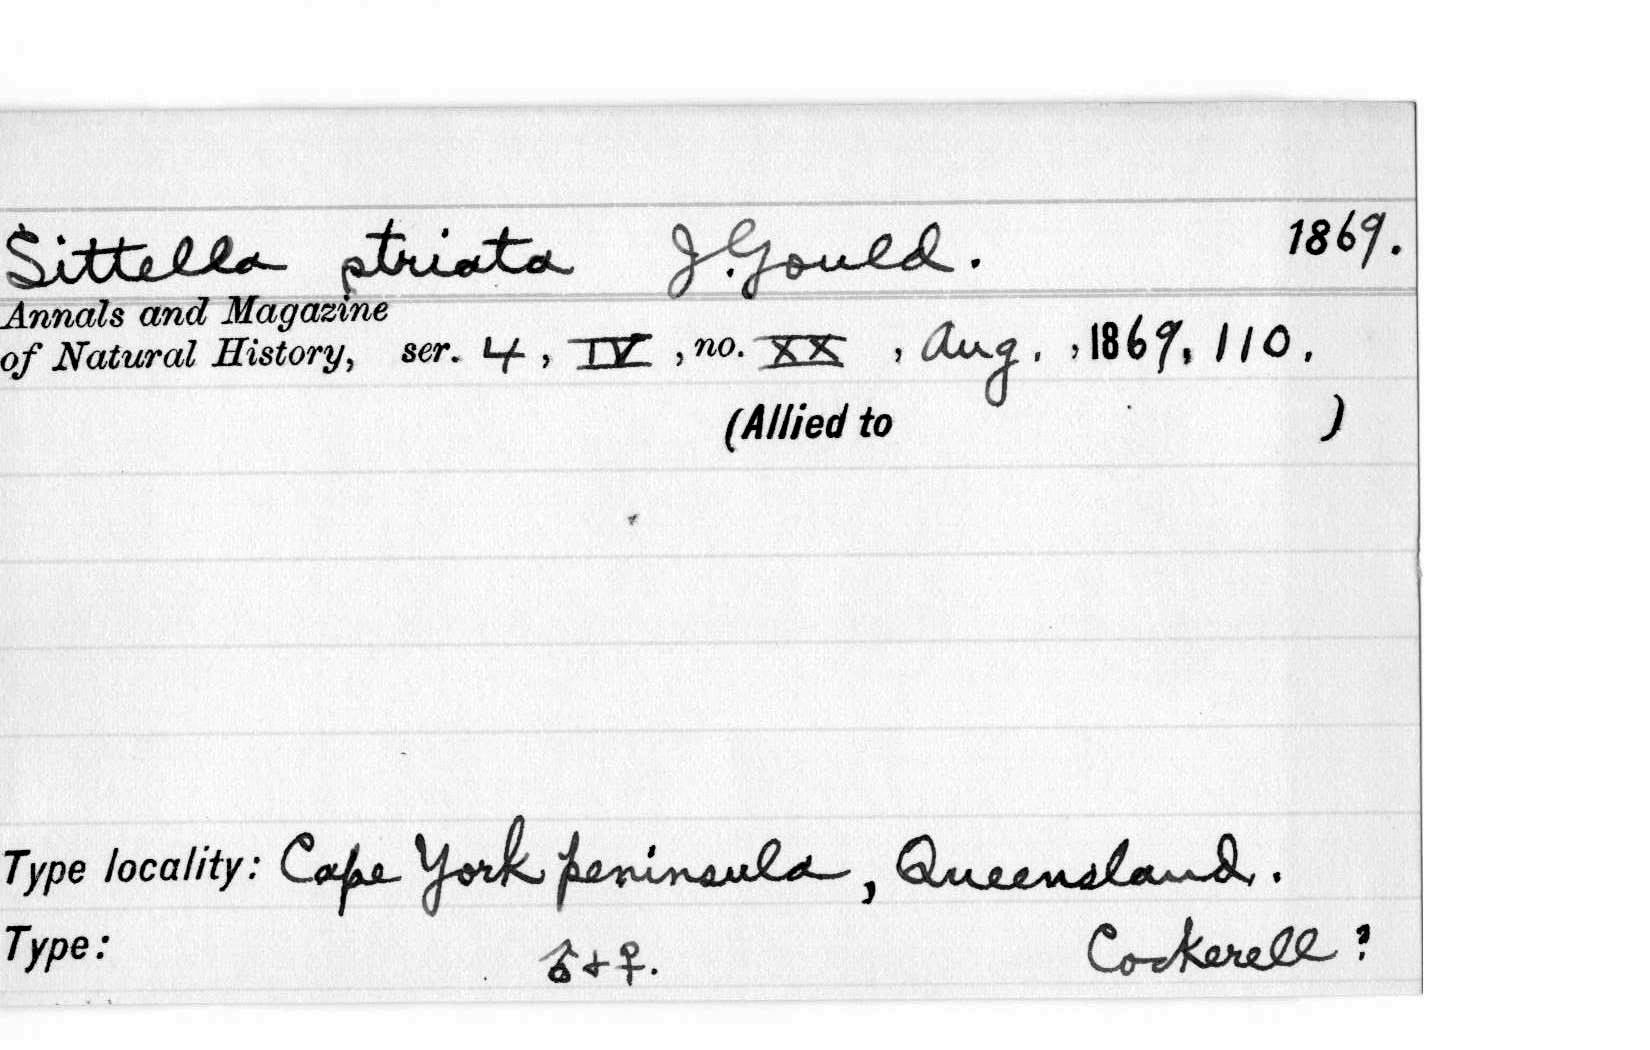 Sittella striata J. Gould. 1869.
Annals and Magazine
of Natural History, ser. 4, IV, no. XX, Aug., 1869, 110.
(Allied to )
Type locality: Cape York peninsula, Queensland.
Type: ♂ + ♀. Cockerell?